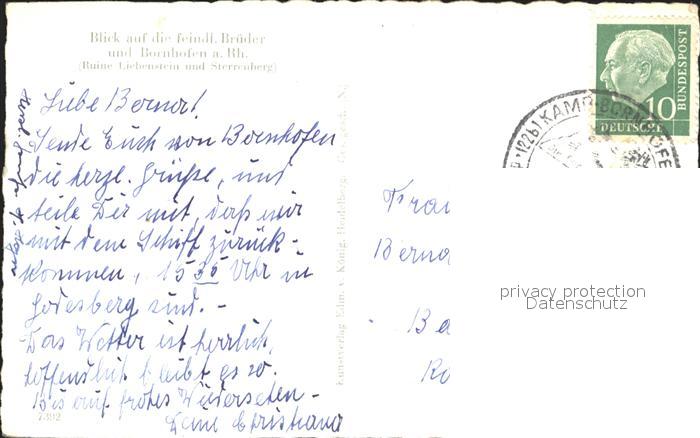 Blick auf die feindl. Brüder
und Bornhofen a. Rh.
(Ruine Liebenstein und Sterrenberg)
Sende Euch von Bornhofen
die herzl. Grüße, und
teile Dir mit, daß wir
mit dem Schiff zurück-
kommen, 15 35 Uhr in
Godesberg sind. -
Das Wetter ist herrlich,
hoffentlich bleibt es so.
Bis auf frohes Wiedersehen -
Deine Christiana
7392
Kunstverlag Edm. v. König, Heidelberg.
10
DEUTSCHE
BUNDESPOST
(22b) KAMP-BORNHOFE
Frau
Berna
Ba
Ro
privacy protection
Datenschutz